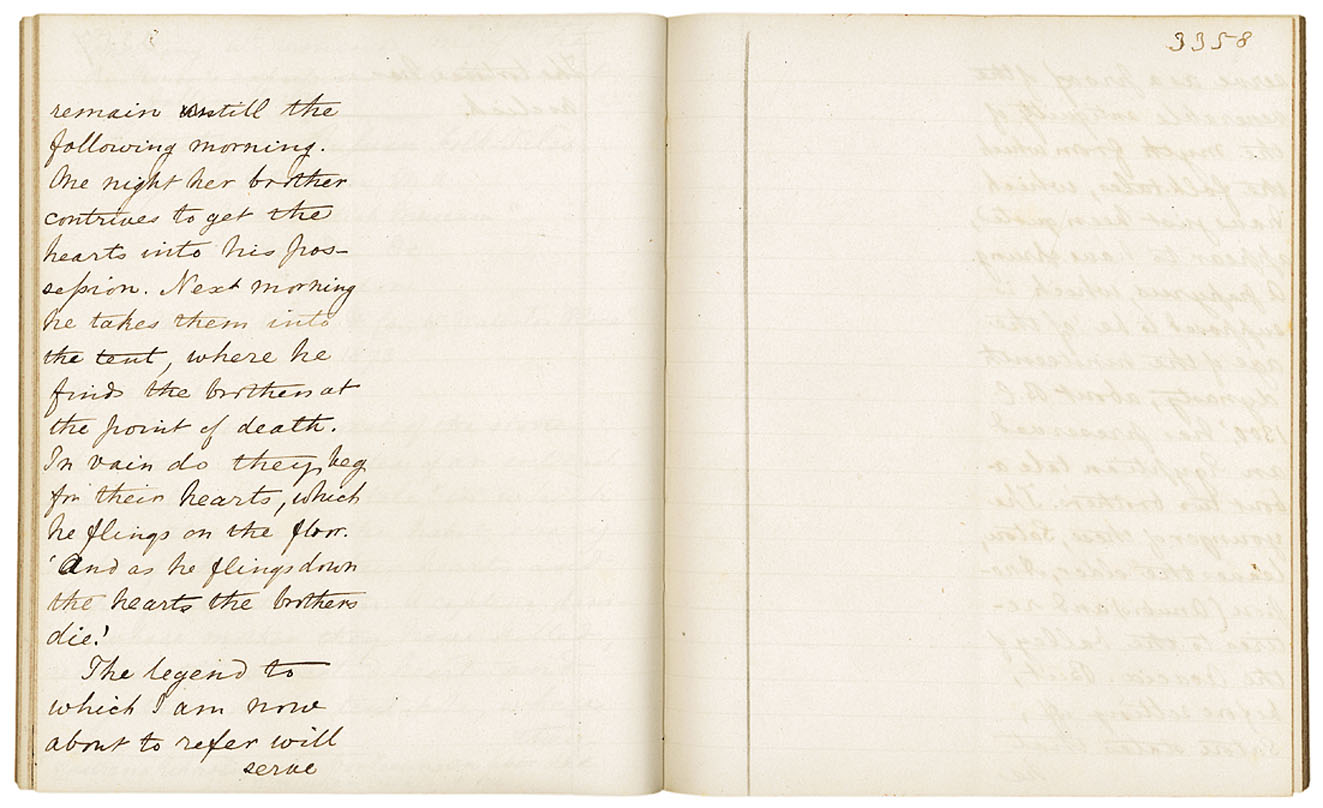 remain untill the
following morning.
One night her brother
contrives to get the
hearts into his pos-
session. Next morning
he takes them into
the tent, where he
finds the brothers at
the point of death.
In vain do they beg
for their hearts, which
he flings on the floor.
'And as he flings down
the hearts the brothers
die.'
The legend to
which I am now
about to refer will
serve
3358